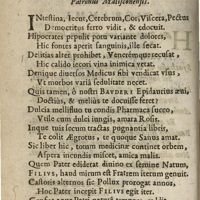 Patronus Matisconensis.
INtestina, Iecur, Cerebrom, Cor, Viscera, Pectus
Democritus ferro vidit, & edocuit.
Hipocrates pepulit potu variante dolores,
Hic fontes aperit sanguinis, ille secat.
Delitias alter prohibet, Veneremque recusat,
Hic calido icores vina inimica vetat.
Denique diversos Medicus sibi vendicat usus,
Ut morbus variâ seduliate necet.
Quis tamen, ô nostri BAUDERI Epidaurius
Doctiùs, & melius te docuisse feret?
Dulcia mellifluo tu condis Pharmaca succo,
Utile cum dulci iungis, amara Rosis.
Inque tuis sucrum tractas pugnantia libris,
Te colit Ægrotus, te quoque Sanus amat.
Sic liber hic, totum medicinæ continet orbem
Aspera incundis miscet, amica malis.
Quem Pater ediderat divino es semine Natum,
FILIUS, haud mirum est Fratrem iterum genuit.
Castoris alternos sic Pollux prorogat annos,
Hoc Pater incepit FILIUS egit iter.